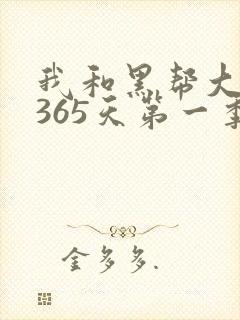 我和黑帮大
365天第一季
金多多.